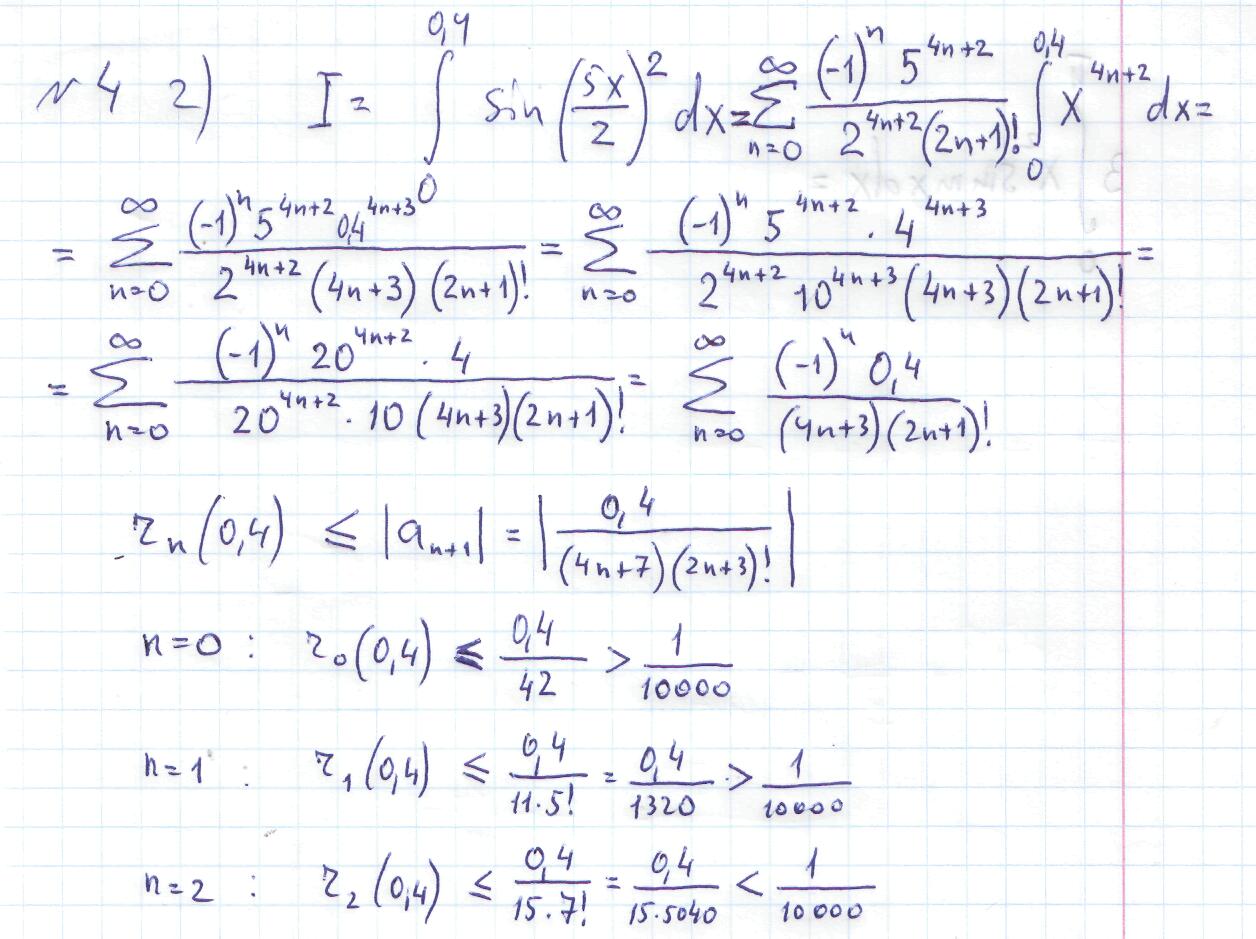 №4 2) I = ∫_0^{0,4} sin(5x/2)^2 dx = ∑_{n=0}^{∞} (-1)^n 5^{4n+2} / (2^{4n+2} (2n+1)!) ∫_0^{0,4} x^{4n+2} dx =
= ∑_{n=0}^{∞} (-1)^n 5^{4n+2} 0,4^{4n+3} / (2^{4n+2} (4n+3) (2n+1)!) = ∑_{n=0}^{∞} (-1)^n 5^{4n+2} · 4^{4n+3} / (2^{4n+2} 10^{4n+3} (4n+3) (2n+1)!) =
= ∑_{n=0}^{∞} (-1)^n 20^{4n+2} · 4 / (20^{4n+2} · 10 (4n+3)(2n+1)!) = ∑_{n=0}^{∞} (-1)^n 0,4 / ((4n+3)(2n+1)!)
r_n(0,4) ≤ |a_{n+1}| = |0,4 / ((4n+7)(2n+3)!)|
n=0 : r_0(0,4) ≤ 0,4/42 > 1/10000
n=1 : r_1(0,4) ≤ 0,4/(11·5!) = 0,4/1320 > 1/10000
n=2 : r_2(0,4) ≤ 0,4/(15·7!) = 0,4/(15·5040) < 1/10000